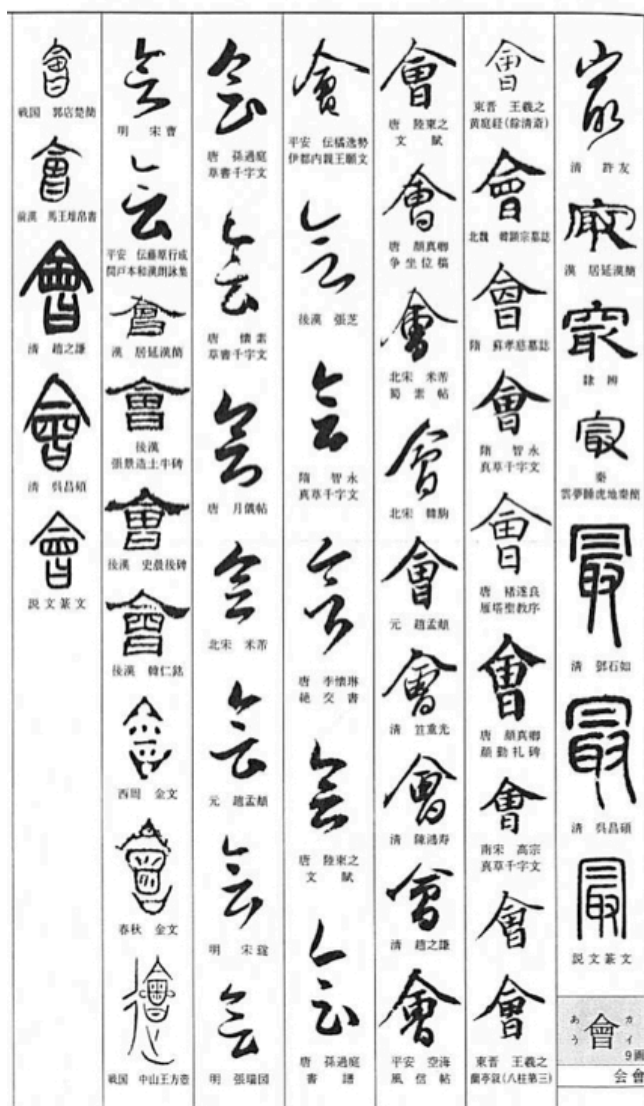 清 許友
漢 居延漢簡
隸辨
秦
雲夢睡虎地秦簡
清 鄧石如
清 呉昌碩
説文篆文
會
カイ
あう
9画
会會
東晋 王羲之
黄庭経(餘清斎)
北魏 韓顕宗墓誌
隋 蘇孝慈墓誌
隋 智永
真草千字文
唐 褚遂良
雁塔聖教序
唐 顔真卿
顔勤礼碑
南宋 高宗
真草千字文
東晋 王羲之
蘭亭叙(八柱第三)
唐 陸東之
文賦
唐 顔真卿
争坐位稿
北宋 米芾
蜀素帖
北宋 韓駒
元 趙孟頫
清 笪重光
清 陳鴻寿
清 趙之謙
平安 空海
風信帖
平安 伝橘逸勢
伊都内親王願文
後漢 張芝
隋 智永
真草千字文
唐 李懐琳
絶交書
唐 陸東之
文賦
唐 孫過庭
書譜
唐 孫過庭
草書千字文
唐 懐素
草書千字文
唐 月儀帖
北宋 米芾
元 趙孟頫
明 宋璲
明 張瑞図
明 宋曹
平安 伝藤原行成
関戸本和漢朗詠集
漢 居延漢簡
後漢
張景造土牛碑
後漢 史晨後碑
後漢 韓仁銘
西周 金文
春秋 金文
戦国 中山王方壺
戦国 郭店楚簡
前漢 馬王堆帛書
清 趙之謙
清 呉昌碩
説文篆文